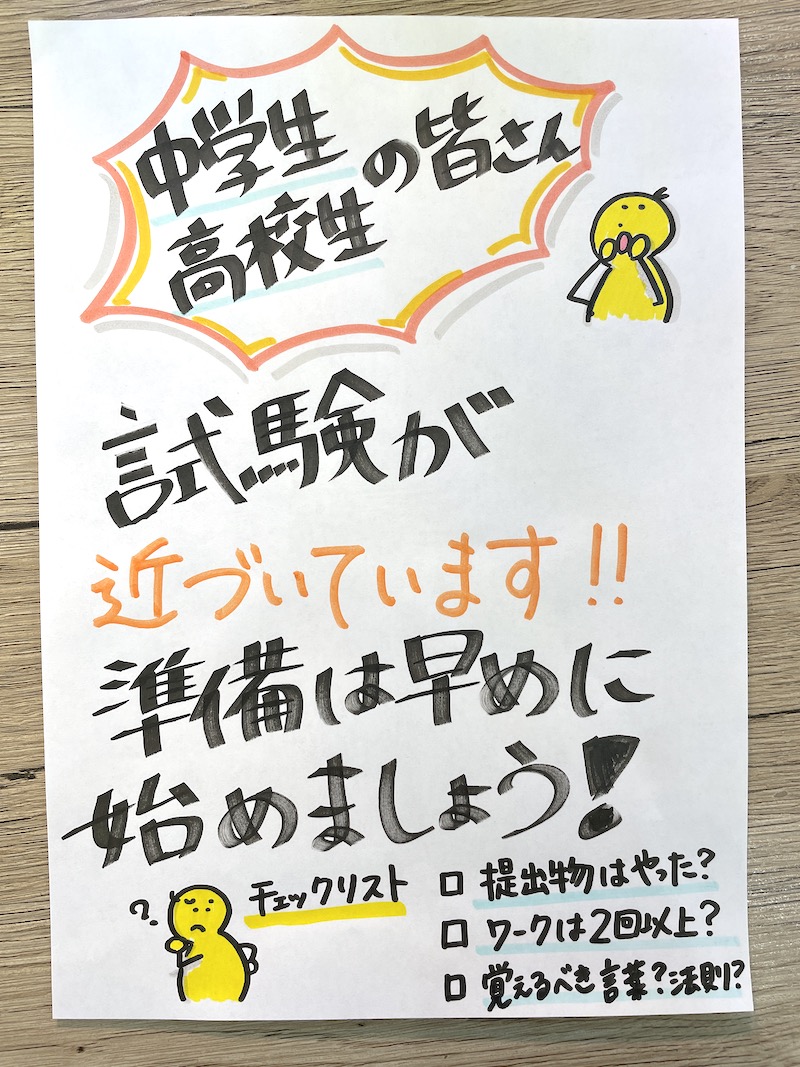 中学生
高校生
の皆さん
試験が
近づいています!!
準備は早めに
始めましょう!
?
チェックリスト
□ 提出物はやった?
□ ワークは2回以上?
□ 覚えるべき言葉?法則?